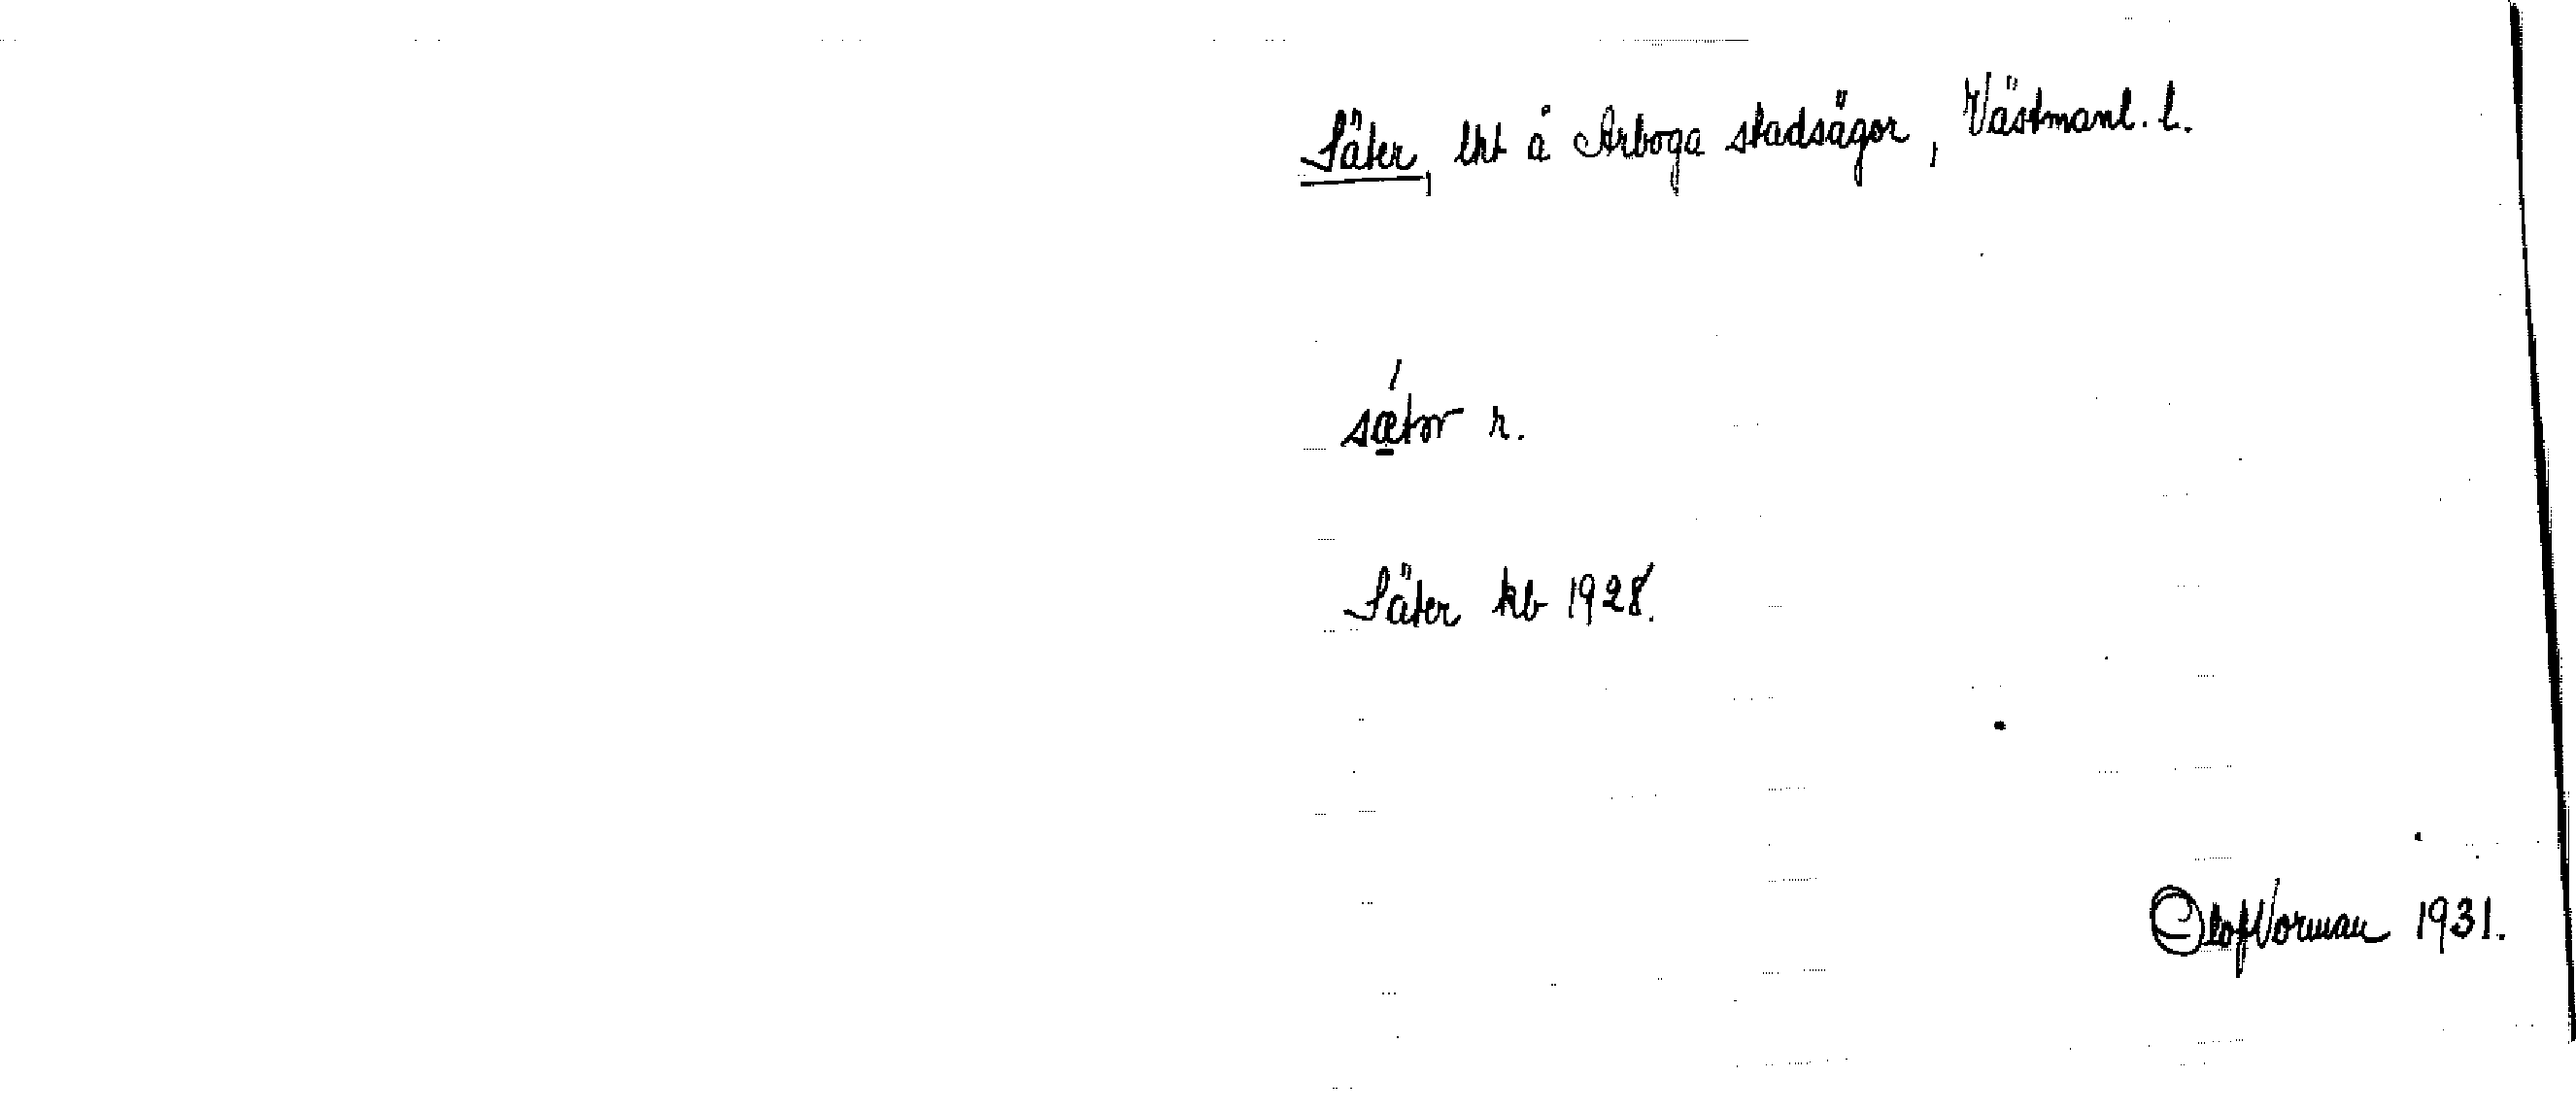 Säter, lht å Arboga stadsägor, Västmanl. l.
sætər r.
Säter kb 1928.
Olof Vorman 1931.